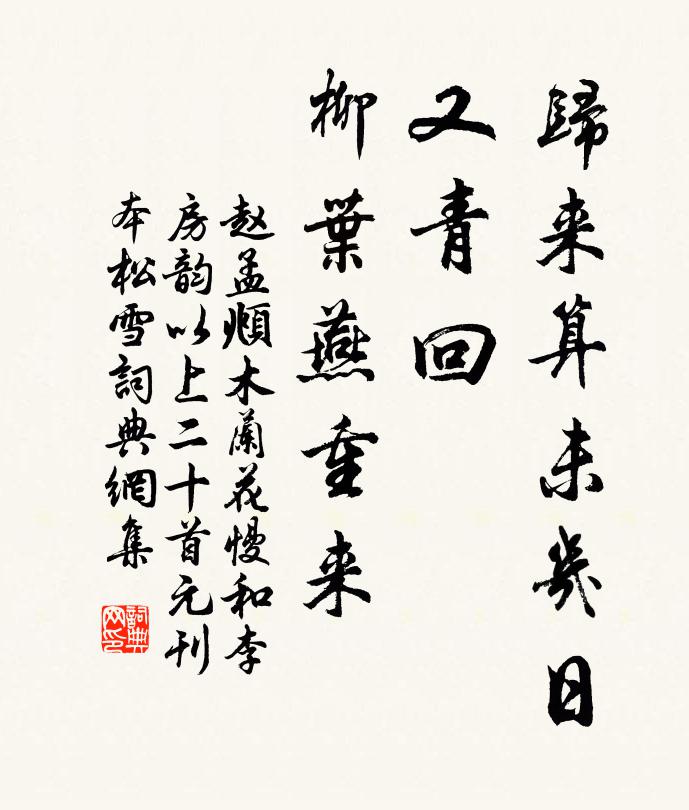 歸来算未幾日
又青回
柳葉燕重来
赵孟順木蘭花慢和李
房韵以上二十首元刊
本松雪詞典網集
詞典网印